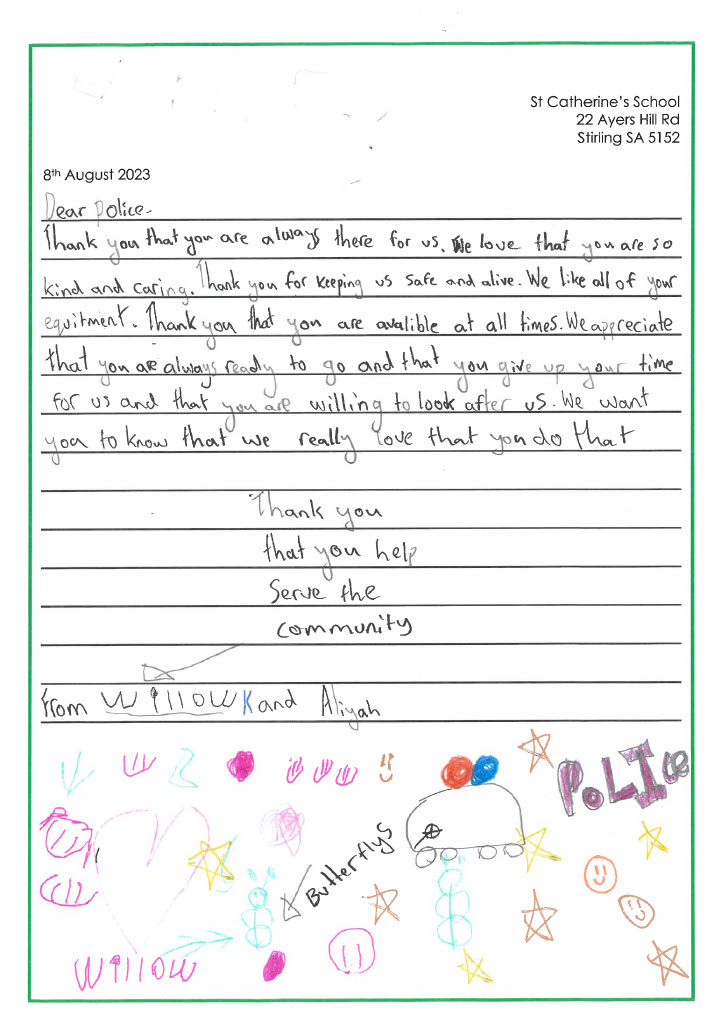 St Catherine's School
22 Ayers Hill Rd
Stirling SA 5152
8th August 2023
Dear Police-
Thank you that you are always there for us. We love that you are so
kind and caring. Thank you for keeping us safe and alive. We like all of your
equitment. Thank you that you are avalible at all times. We appreciate
that you are always ready to go and that you give up your time
for us and that you are willing to look after us. We want
you to know that we really love that you do that
Thank you
that you help
Serve the
community
From Willow K and Aliyah
POLICE
Butterflys
Willow